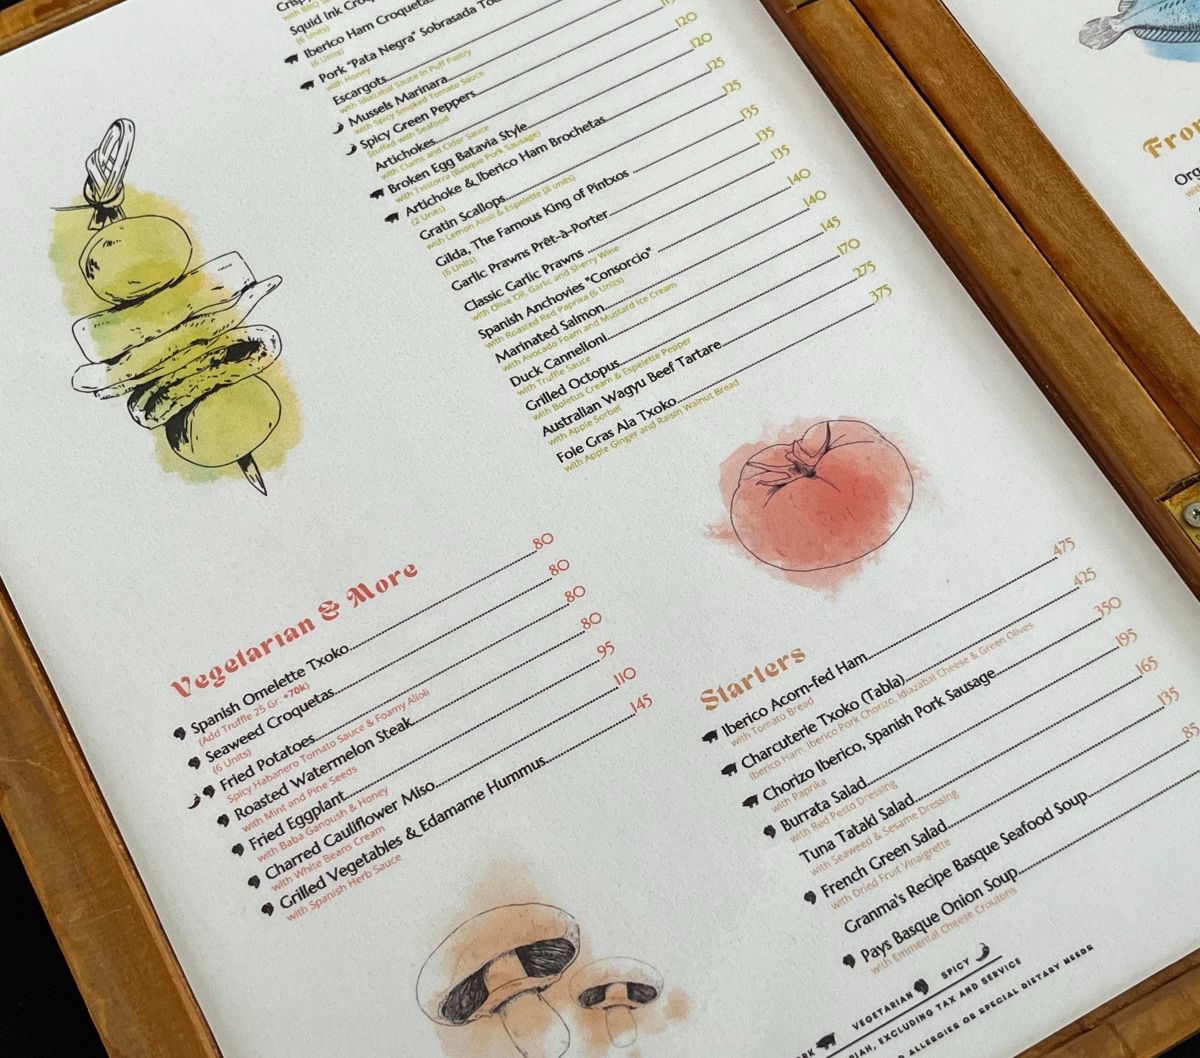 Crisp
with BBQ S
Squid Ink Croq
(6 Units)
Iberico Ham Croquetas
(6 Units)
Pork "Pata Negra" Sobrasada
with Honey
Escargots
with Idiazabal Sauce in Puff Pastry
Mussels Marinara
with Spicy Smoked Tomato Sauce
Spicy Green Peppers
Stuffed with Seafood
Artichokes 120
with Clams and Cider Sauce
Broken Egg Batavia Style 120
with Txistorra (Basque Pork Sausage)
Artichoke & Iberico Ham Brochetas 125
(2 Units)
Gratin Scallops 125
with Lemon Alioli & Espelette (8 units)
Gilda, The Famous King of Pintxos 135
(6 Units)
Garlic Prawns Prêt-à-Porter 135
Classic Garlic Prawns 135
with Olive Oil, Garlic and Sherry Wine
Spanish Anchovies "Consorcio" 140
with Roasted Red Paprika (6 Units)
Marinated Salmon 140
with Avocado Foam and Mustard Ice Cream
Duck Cannelloni 145
with Truffle Sauce
Grilled Octopus 170
with Boletus Cream & Espelette Pepper
Australian Wagyu Beef Tartare 275
with Apple Sorbet
Foie Gras Ala Txoko 375
with Apple Ginger and Raisin Walnut Bread
Vegetarian & More
Spanish Omelette Txoko 80
(Add Truffle 25 Gr. +70k)
Seaweed Croquetas 80
(6 Units)
Fried Potatoes 80
Spicy Habanero Tomato Sauce & Foamy Alioli
Roasted Watermelon Steak 80
with Mint and Pine Seeds
Fried Eggplant 95
with Baba Ganoush & Honey
Charred Cauliflower Miso 110
with White Beans Cream
Grilled Vegetables & Edamame Hummus 145
with Spanish Herb Sauce
Starters
Iberico Acorn-fed Ham 475
with Tomato Bread
Charcuterie Txoko (Tabla) 425
Iberico Ham, Iberico Pork Chorizo, Idiazabal Cheese & Green Olives
Chorizo Iberico, Spanish Pork Sausage 350
with Paprika
Burrata Salad 195
with Red Pesto Dressing
Tuna Tataki Salad 165
with Seaweed & Sesame Dressing
French Green Salad 135
with Dried Fruit Vinaigrette
Granma's Recipe Basque Seafood Soup 85
Pays Basque Onion Soup
with Emmental Cheese Croutons
VEGETARIAN SPICY
RIAH, EXCLUDING TAX AND SERVICE
ALLERGIES OR SPECIAL DIETARY NEEDS
Fro
Org